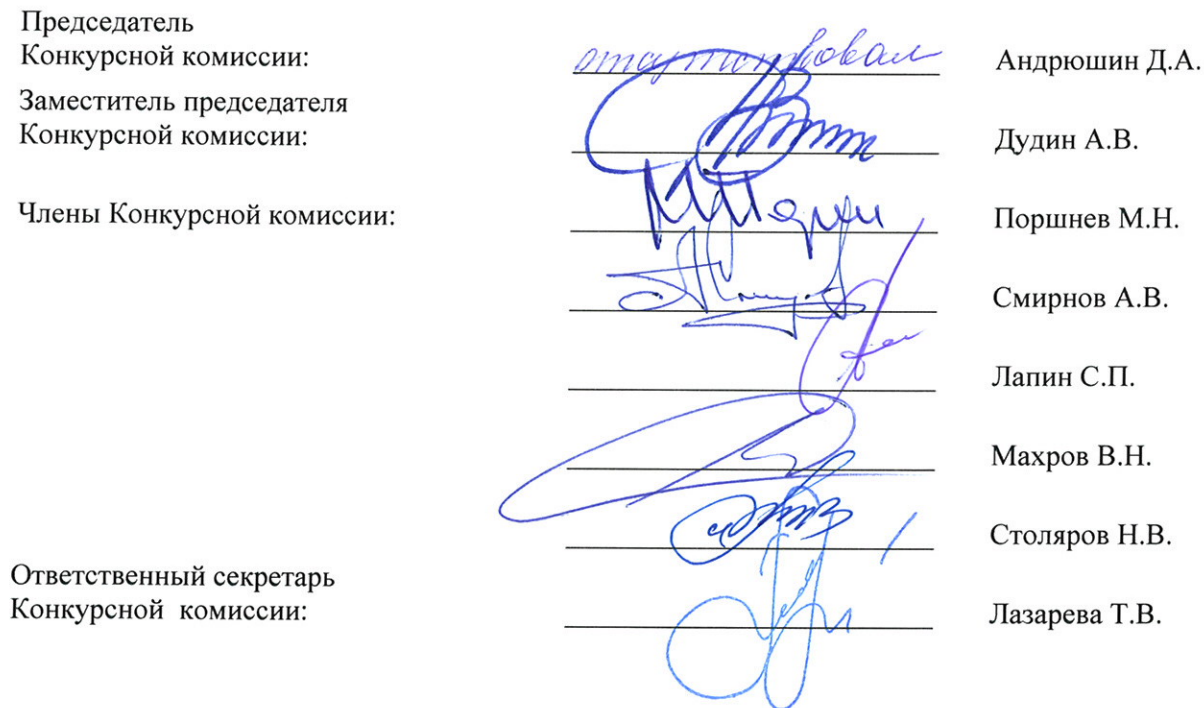 Председатель
Конкурсной комиссии:
отсутствовал Андрюшин Д.А.
Заместитель председателя
Конкурсной комиссии:
Дудин А.В.
Члены Конкурсной комиссии:
Поршнев М.Н.
Смирнов А.В.
Лапин С.П.
Махров В.Н.
Столяров Н.В.
Ответственный секретарь
Конкурсной комиссии:
Лазарева Т.В.